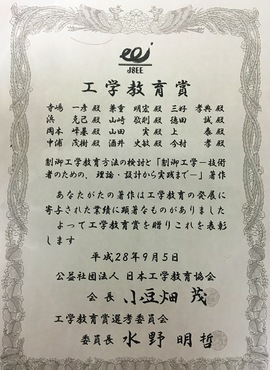 JSEE
工学教育賞
寺嶋 一彦 殿 兼重 明宏 殿 三好 孝典 殿
浜 克己 殿 山崎 敬則 殿 徳田 誠 殿
岡本 峰基 殿 山田 実 殿 上 泰 殿
中浦 茂樹 殿 酒井 史敏 殿 今村 孝 殿
制御工学教育方法の検討と「制御工学－技術
者のための、理論・設計から実践まで－」著作
あなたがたの著作は工学教育の発展に
寄与された業績に顕著なものがありました
よって工学教育賞を贈りこれを表彰
します
平成28年9月5日
公益社団法人 日本工学教育協会
会長 小豆畑 茂
工学教育賞選考委員会
委員長 水野 明哲